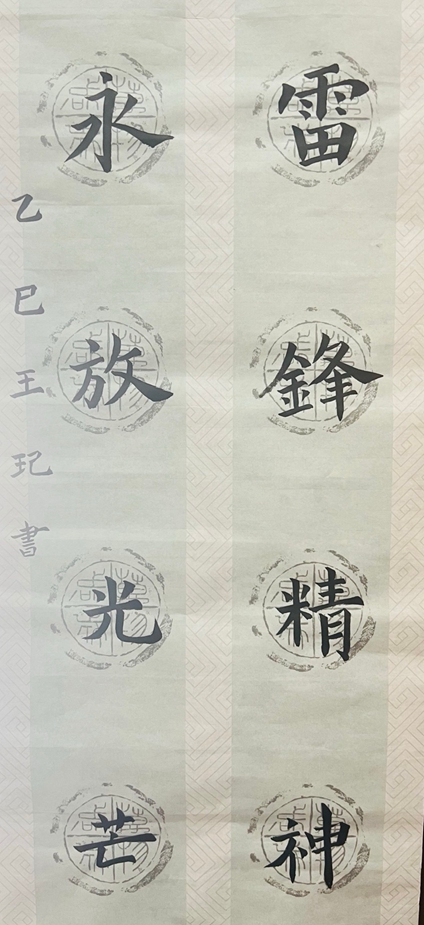 雷鋒精神
永放光芒
乙巳王玘書